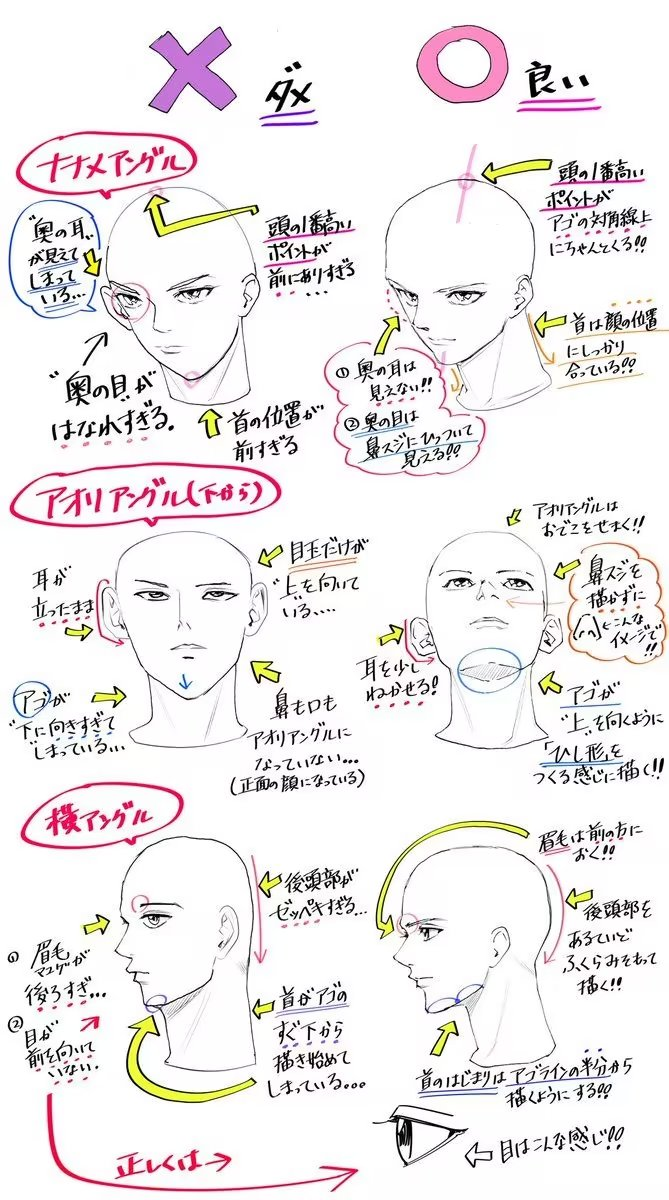 ダメ
良い
ナナメアングル
"奥の耳"
が見えて
しまって
いる…
頭の1番高い
ポイントが
前にありすぎる
…
"奥の目"が
はなれすぎる。
首の位置が
前すぎる
頭の1番高い
ポイントが
アゴの対角線上
にちゃんとくる!!
首は顔の位置
にしっかり
合っている!!
① 奥の耳は
見えない!!
② 奥の目は
鼻スジにひっついて
見える!!
アオリアングル(下から)
耳が
立ったまま
目玉だけが
"上"を向いて
いる….
アゴが
"下"に向きすぎて
しまっている…
鼻も口も
アオリアングルに
なっていない…
(正面の顔になっている)
アオリアングルは
おでこをせまく!!
鼻スジを
描かずに
←こんな
イメージで
!!
耳を少し
ねかせる!
アゴが
"上"を向くように
「ひし形」を
つくる感じに描く!!
横アングル
① 眉毛
マユゲが
後ろすぎ…
② 目が
前を向いて
いない.
後頭部が
ゼッペキすぎる…
首がアゴの
すぐ下から
描き始めて
しまっている…
眉毛は前の方に
おく!!
後頭部を
あるていど
ふくらみをもって
描く!!
首のはじまりはアゴラインの半分から
描くようにする!!
正しくは→
目はこんな感じ!!